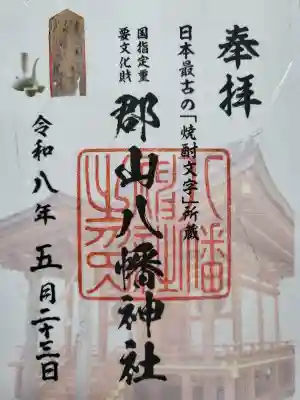 奉拝
日本最古の「焼酎文字」所蔵
国指定重
要文化財
郡山八幡神社
令和八年五月二十三日